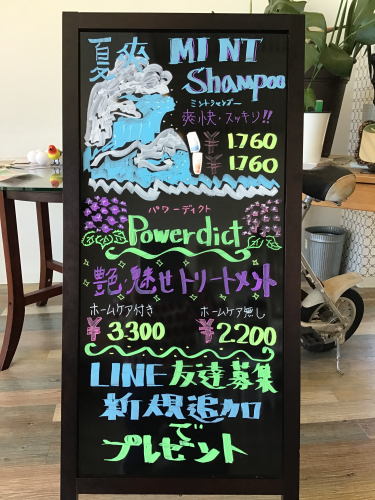 夏爽 MINT
Shampoo
ミントシャンプー
爽快・スッキリ!!
¥1.760
¥1.760
パワーディクト
Powerdict
艶・魅せトリートメント
ホームケア付き ホームケア無し
¥3.300 ¥2.200
LINE友達募集
新規追加
で
プレゼント